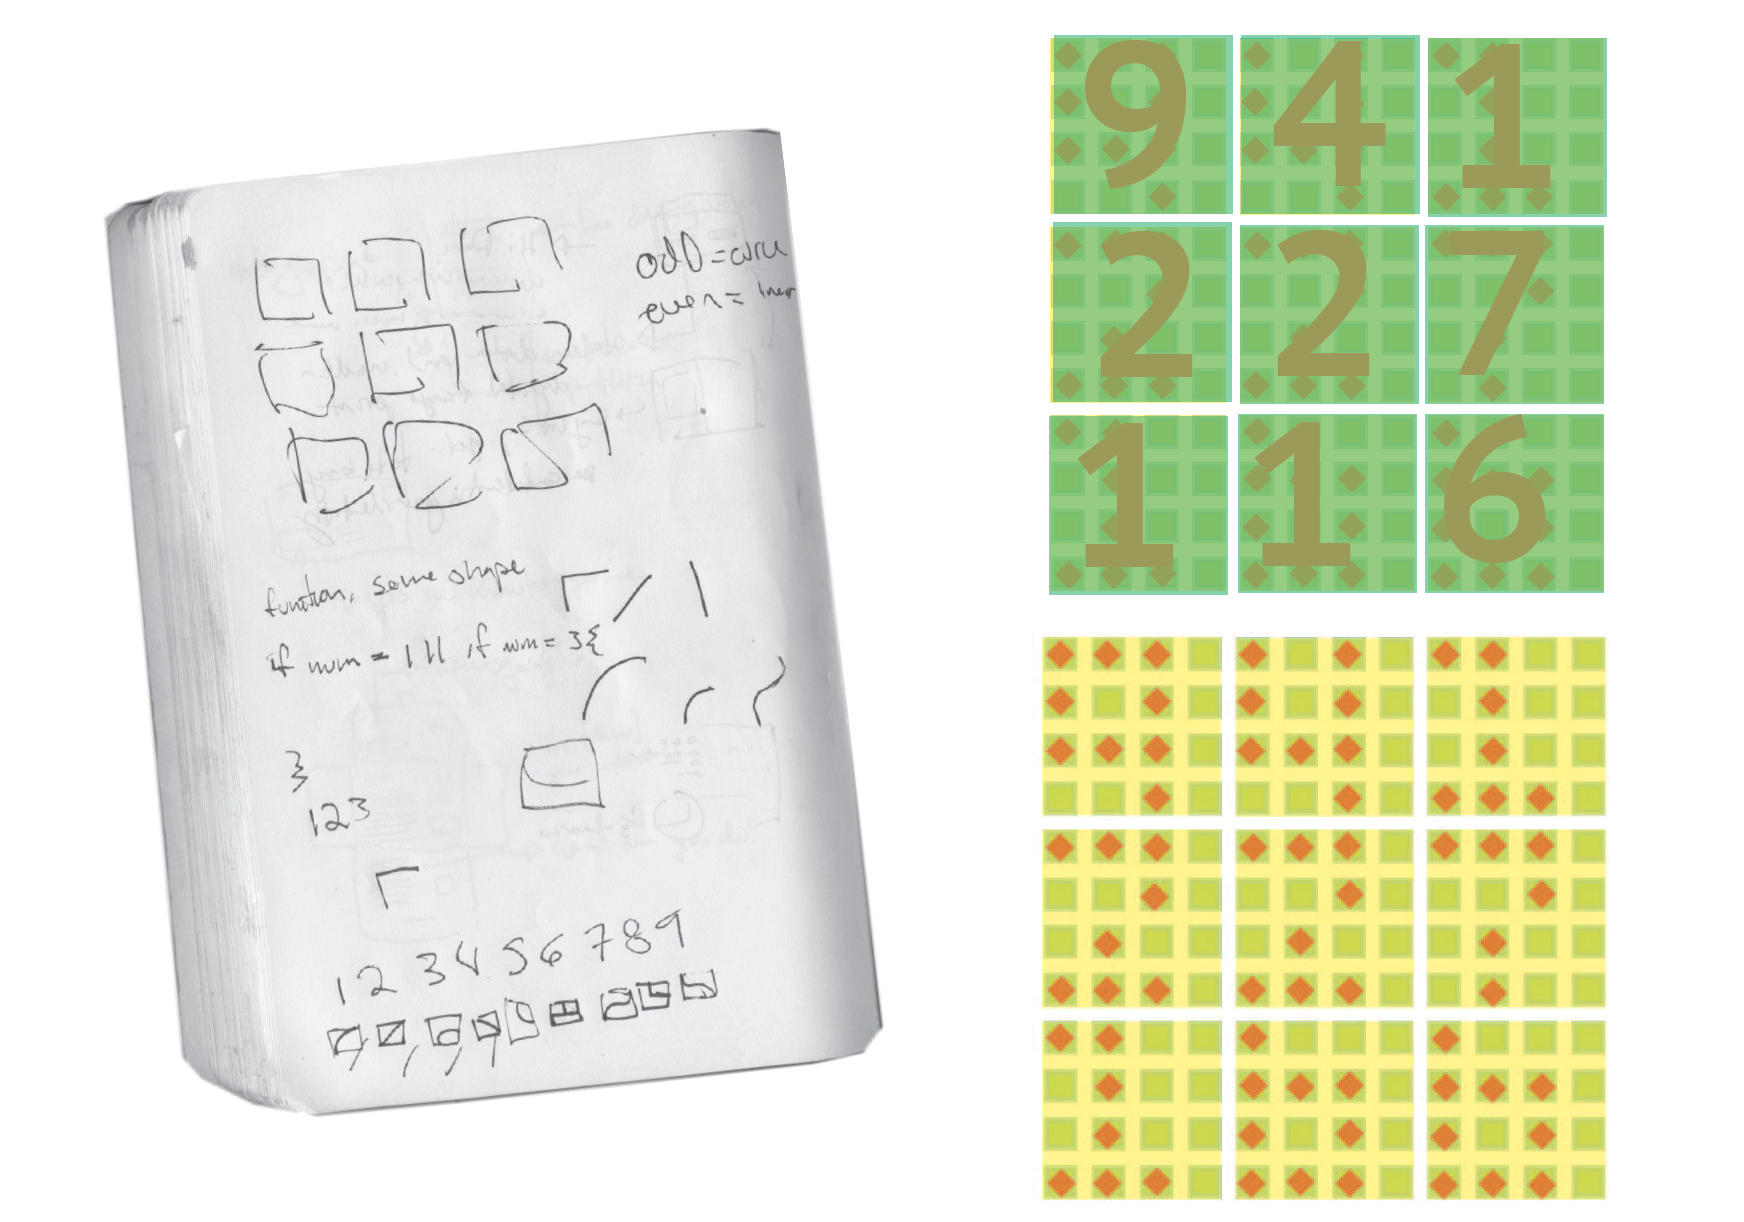 odd = circle
even =
function, same shape
if num = 1 || if num = 3{
}
123
1 2 3 4 5 6 7 8 9
9 4 1
2 2 7
1 1 6